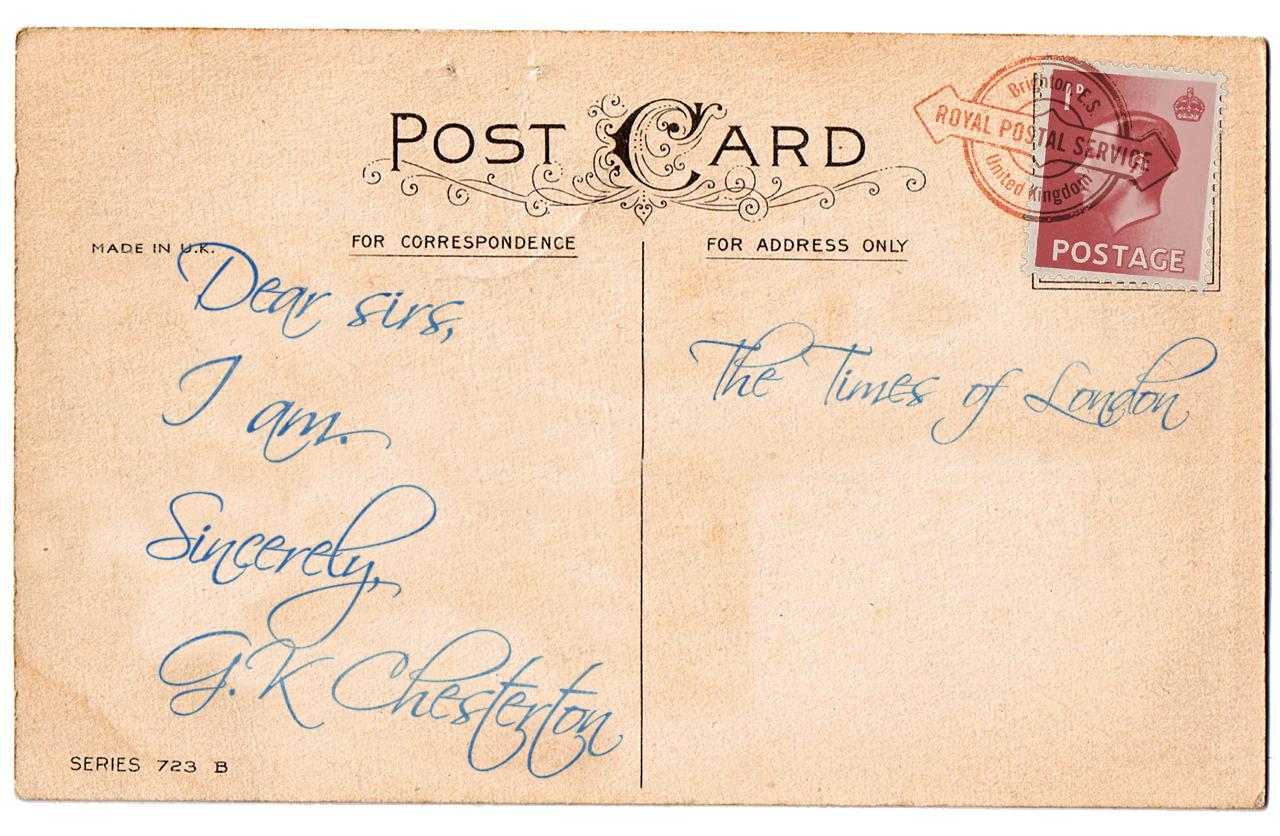 POST CARD
MADE IN U.K.
FOR CORRESPONDENCE
FOR ADDRESS ONLY
Brighton E.S.
ROYAL POSTAL SERVICE
United Kingdom
1D
POSTAGE
Dear sirs,
I am.
Sincerely,
G.K Chesterton
The Times of London
SERIES 723 B